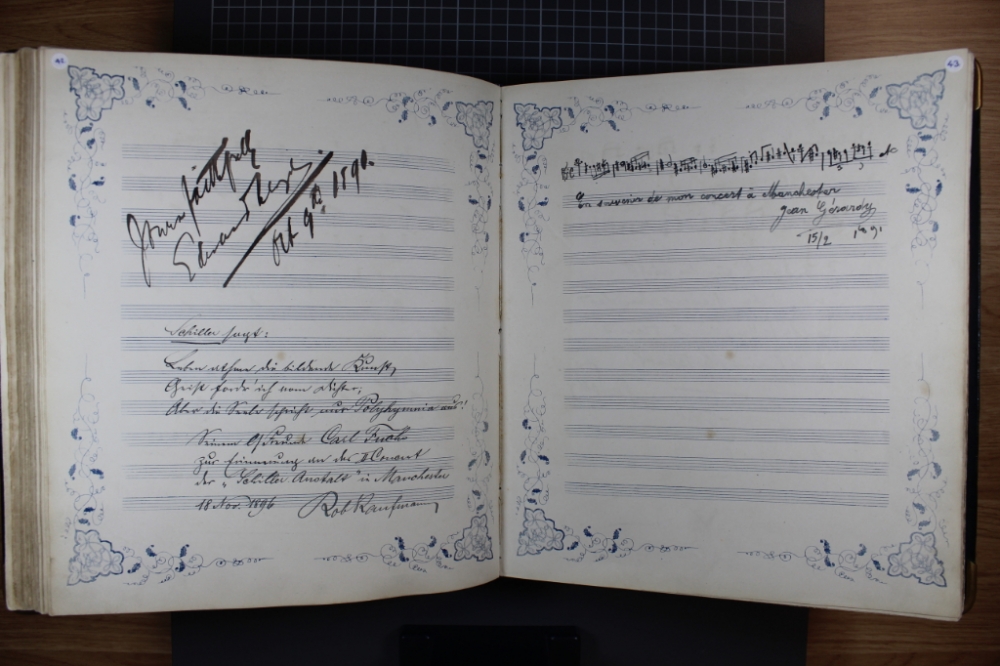 42
Yours faithfully
Edward
Oct 9th 1891.
Schiller sagt:
Leben athme die bildende Kunst,
Geist fordr' ich vom Dichter;
Aber die Seele spricht nur Polyhymnia aus!
Seinem Freunde Carl Fuchs
zur Erinnerung an das Concert
der "Schiller Anstalt" in Manchester
18 Nov. 1896 Rob Kaufmann
43
En souvenir de mon concert à Manchester
Jean Gérardy
15/2 91